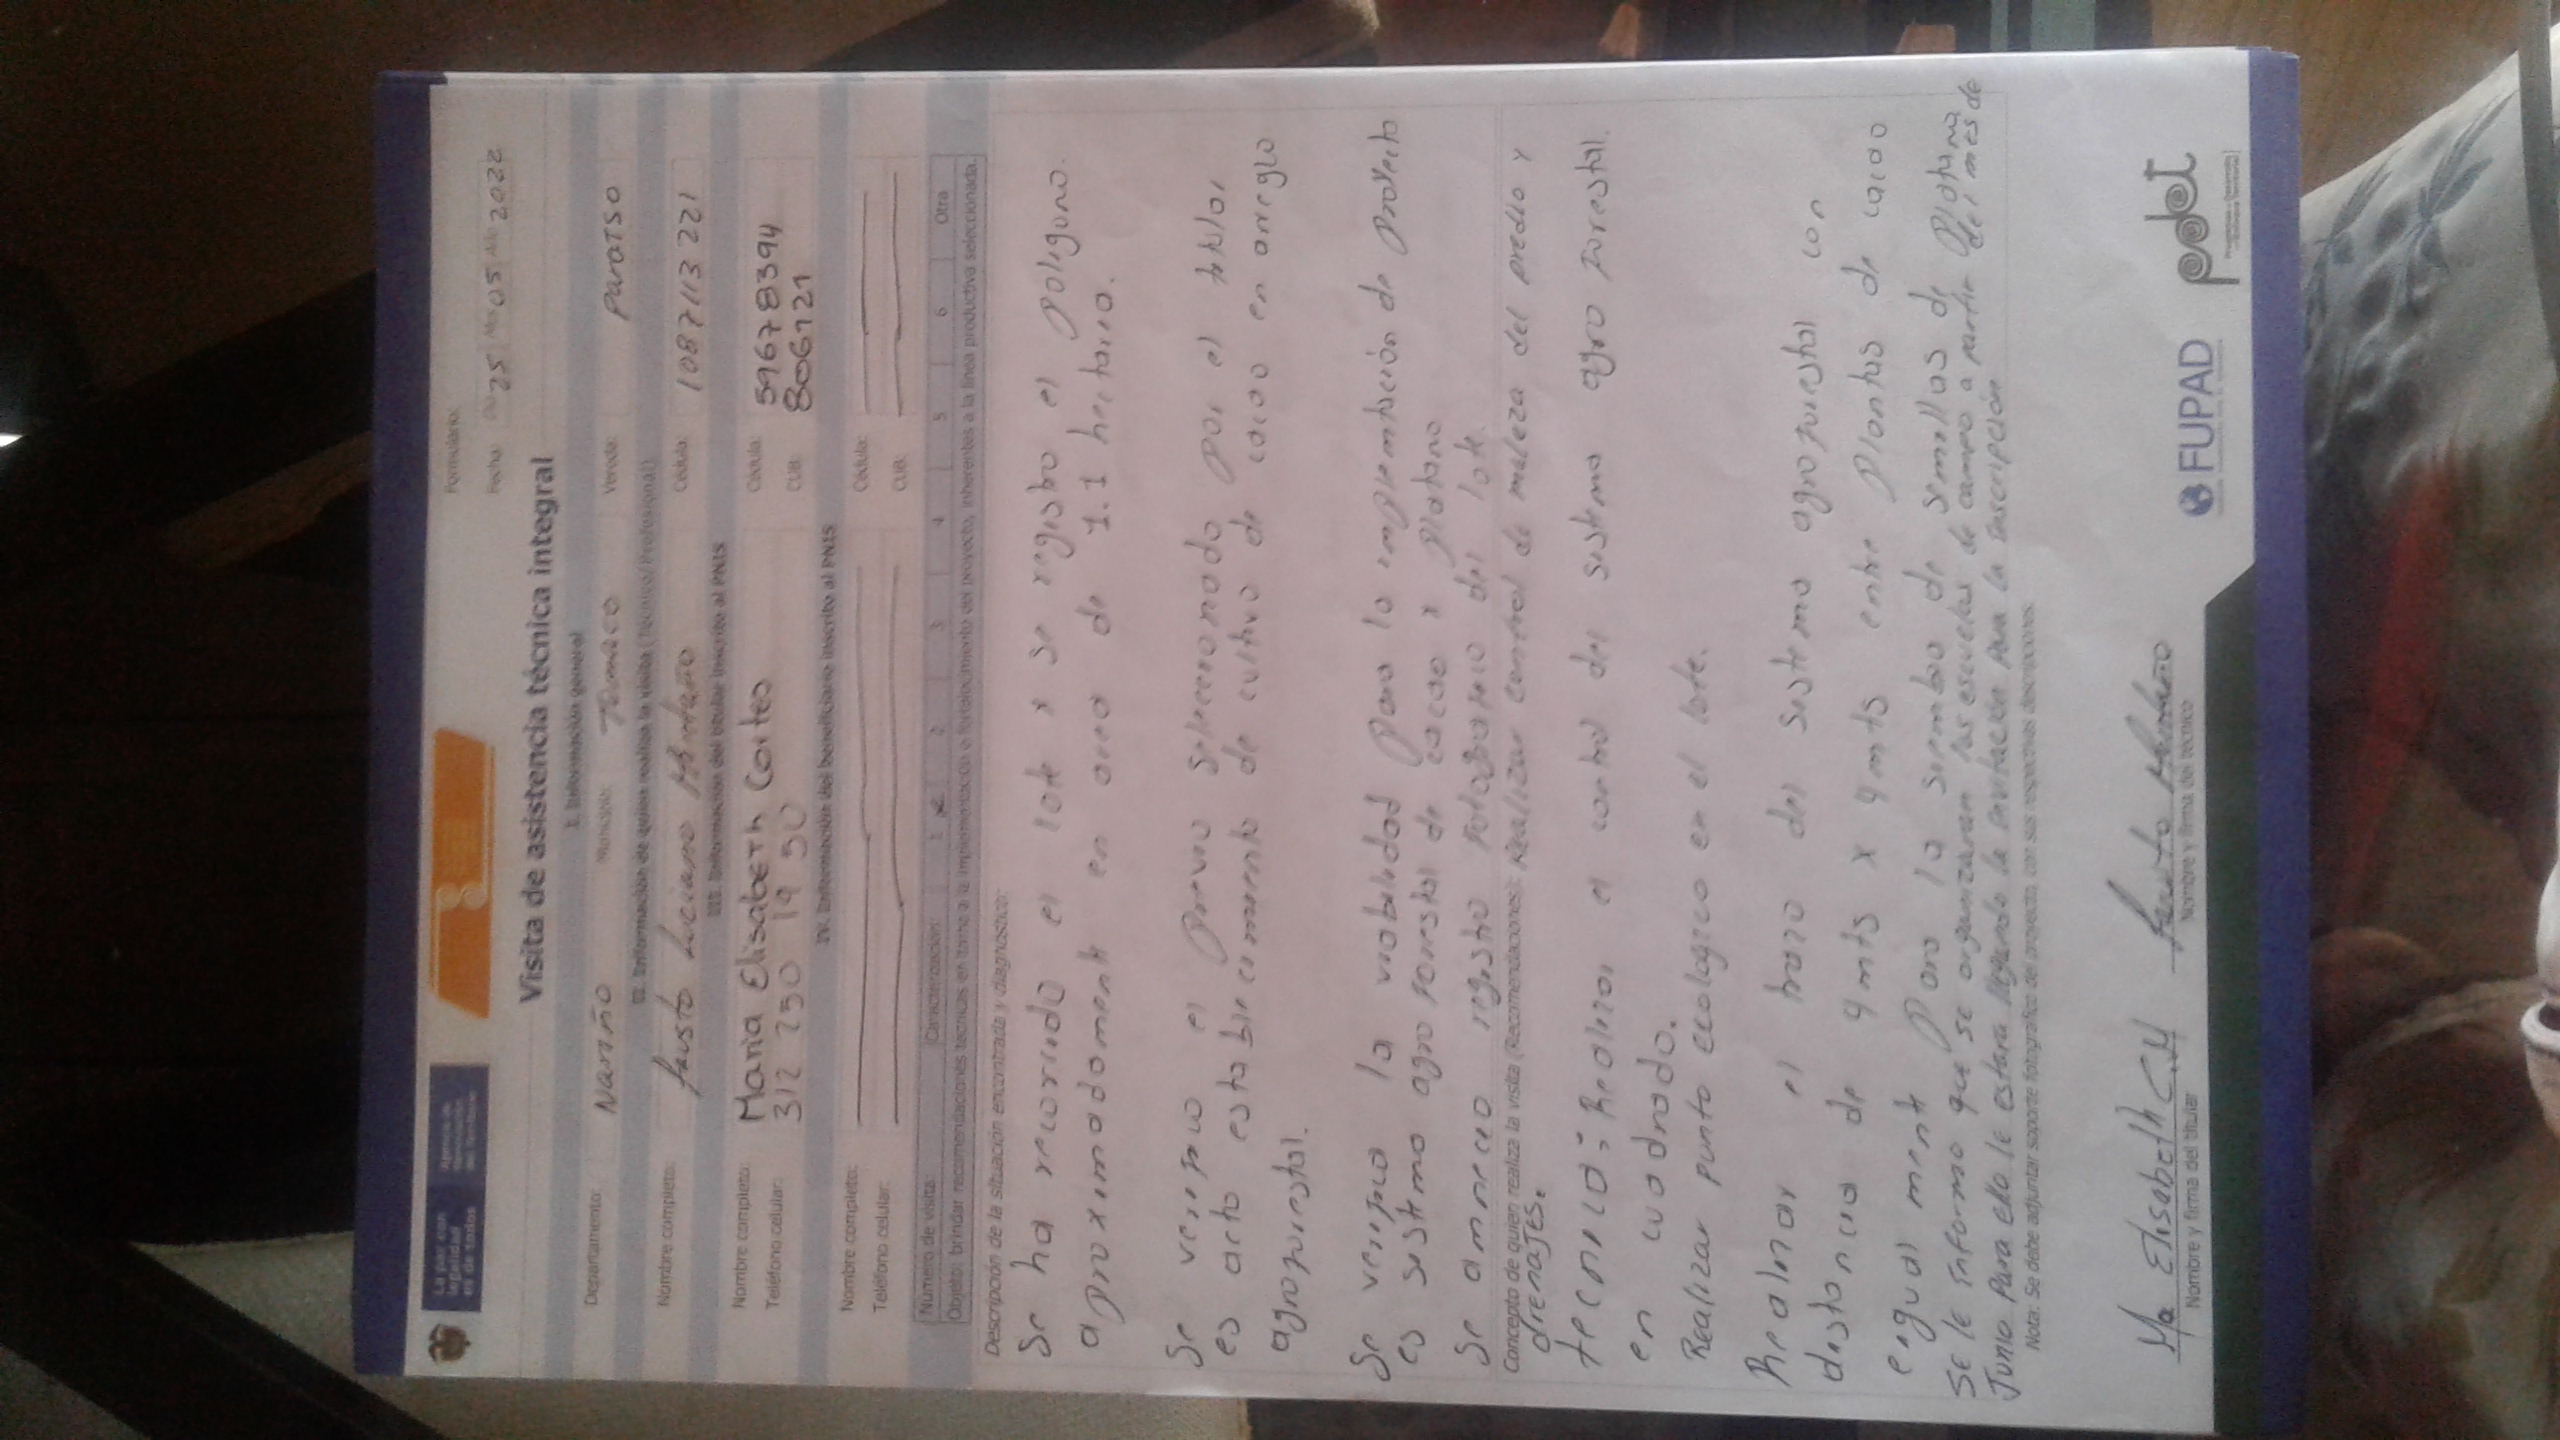 La paz con
legalidad
es de todos
Agencia de
Renovación
del Territorio
Formulario:
Fecha: DD 25 Mes 05 Año 2022
Visita de asistencia técnica integral
I. Información general
Departamento: Nariño Municipio: Tumaco Vereda: Paraiso
II. Información de quien realiza la visita (Técnico/Profesional)
Nombre completo: fausto Luciano Montaño Cédula: 1087113221
III. Información del titular inscrito al PNIS
Nombre completo: Maria Elisabeth Cortes Cédula: 59678394
Teléfono celular: 312 250 19 50 CUB: 806121
IV. Información del beneficiario inscrito al PNIS
Nombre completo: Cédula:
Teléfono celular: CUB:
Número de visita: Caracterización: 1 x 2 3 4 5 6 Otra
Objeto: brindar recomendaciones técnicas en torno a la implementación o fortalecimiento del proyecto, inherentes a la línea productiva seleccionada.
Descripción de la situación encontrada y diagnóstico:
Se ha recorrido el lote y se registro el poligono.
aproximadamente en area de 1.1 hectarea.
Se verifico el previo seleccionado por el titular
es acto establecimiento de cultivo de cacao en arreglo
agroforestal.
Se verifico la viabilidad para la implementación de proyecto
es sistema agro forestal de cacao y platano
Se amneceo registro fotografico del lote.
Concepto de quien realiza la visita (Recomendaciones): Realizar control de maleza del predio y
drenajes.
tecnico: Realizar el control del sistema agro forestal.
en cuadrado.
Realizar punto ecologico en el lote.
Realmar el trazo del sistema agroforestal con
distancia de 4 mts x 4 mts entre plantas de cacao
egual ment para la siembra de semillas de platano,
Se le informo que se organizaran las escuelas de campo a partir del mes de
Junio Para ello le estara llegando la invitación para la inscripción
Nota: Se debe adjuntar soporte fotográfico del proyecto, con sus respectivas descripciones.
Ma Elisabeth C.M
Nombre y firma del titular
fausto Montaño
Nombre y firma del técnico
FUPAD
pdet